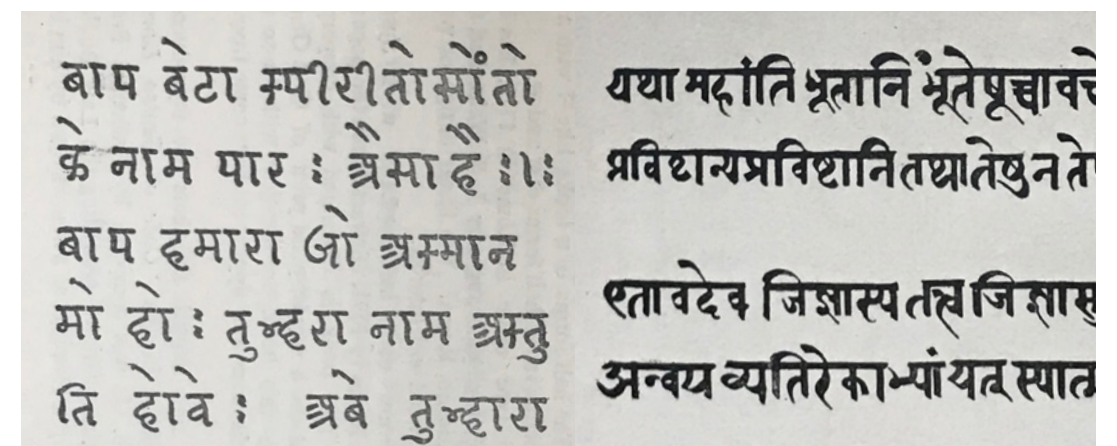 बाप बेटा स्पीरीतोसाँतो
के नाम पार : अैसा है :।:
बाप हमारा जो अस्मान
मो हो : तुम्हरा नाम अस्तु
ति होवे : अबे तुम्हारा
यथा महांति भूतानि भूतेषूच्चावचे
प्रविष्टान्यप्रविष्टानि तथा तेषु न ते
एतावदेव जिज्ञास्य तत्व जिज्ञासु
अन्वय व्यतिरेकाभ्यां यत् स्यात